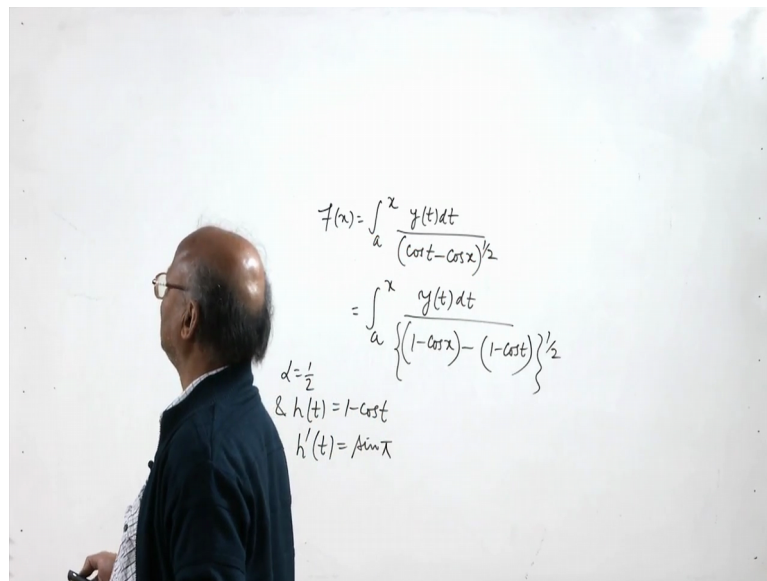 f(x) = ∫_a^x y(t)dt / (cost - cosx)^{1/2}
= ∫_a^x y(t)dt / {(1-cosx) - (1-cost)}^{1/2}
α = 1/2
& h(t) = 1-cost
h'(t) = sinπ